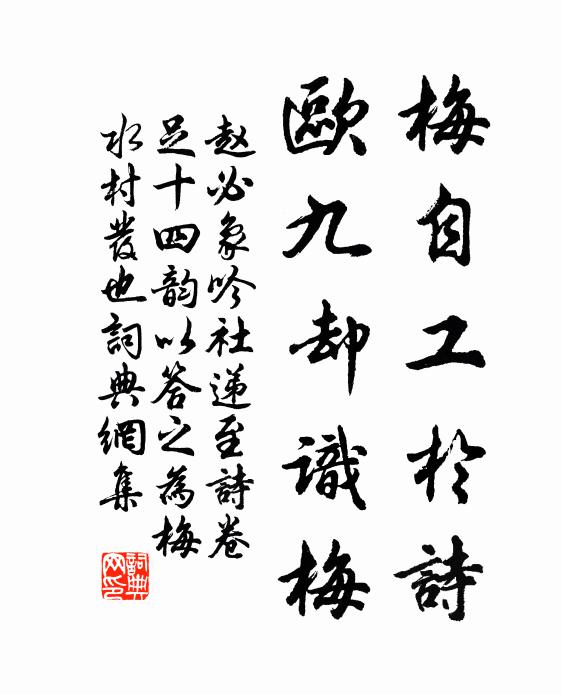 梅自工於詩
歐九却識梅
赵必象吟社递至詩卷
足十四韵以答之為梅
水村發也詞典網集
詞典
网印